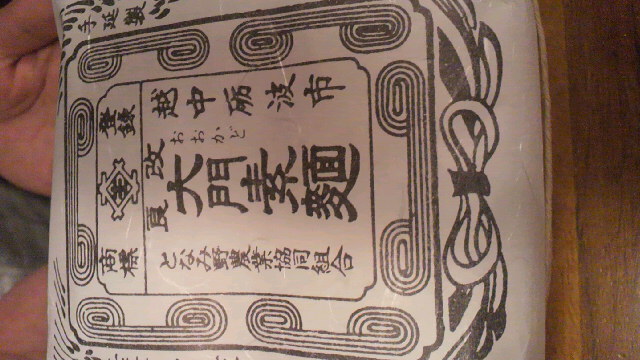 手延製
登録
商標
越中砺波市
改良
おおかど
大門素麵
となみ野農業協同組合